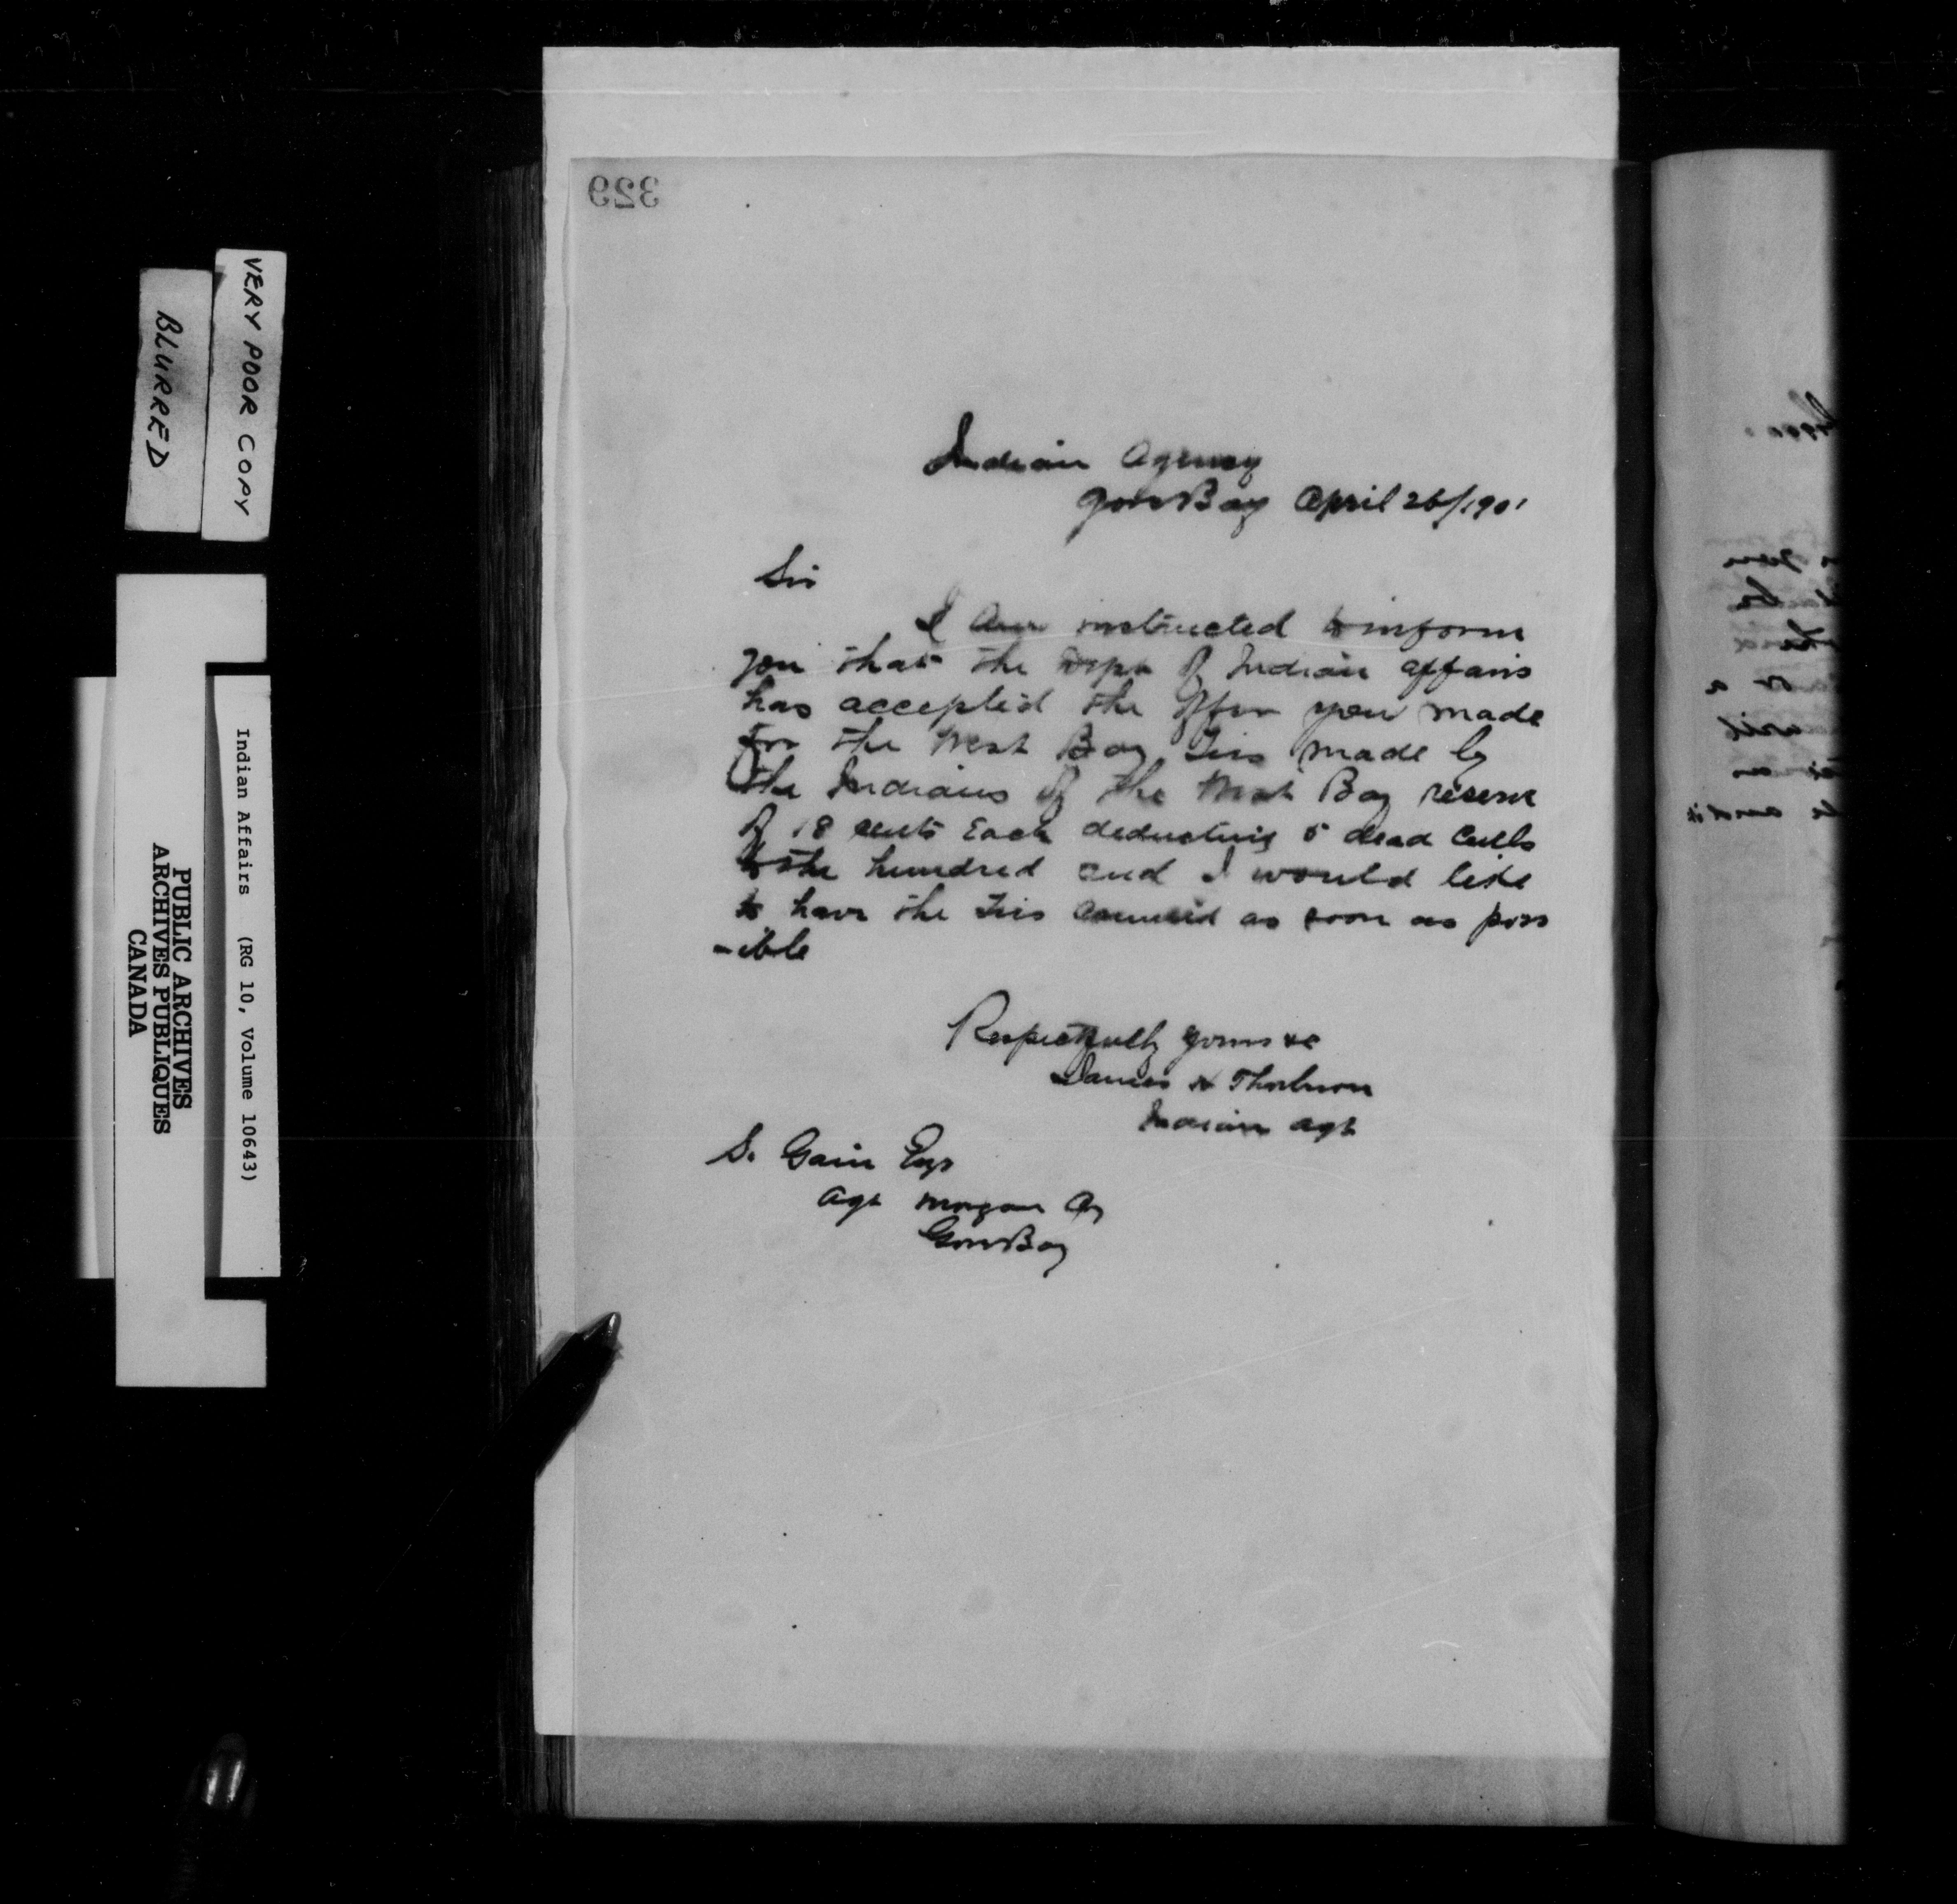 329
Indian Agency
Gore Bay April 26/1901
Sir
I am instructed to inform
you that the Dept of Indian affairs
has accepted the offer you made
for the West Bay Ties made by
the Indians of the West Bay reserve
of 18 cents Each deducting 5 dead Culls
to the hundred and I would like
to have the ties as soon as poss
-ible
Respectfully yours &c
James H Thorburn
Indian agt
S. Gain Esqr
Agt Morgan Co
Gore Bay
VERY POOR COPY
BLURRED
Indian Affairs (RG 10, Volume 10643)
PUBLIC ARCHIVES
ARCHIVES PUBLIQUES
CANADA